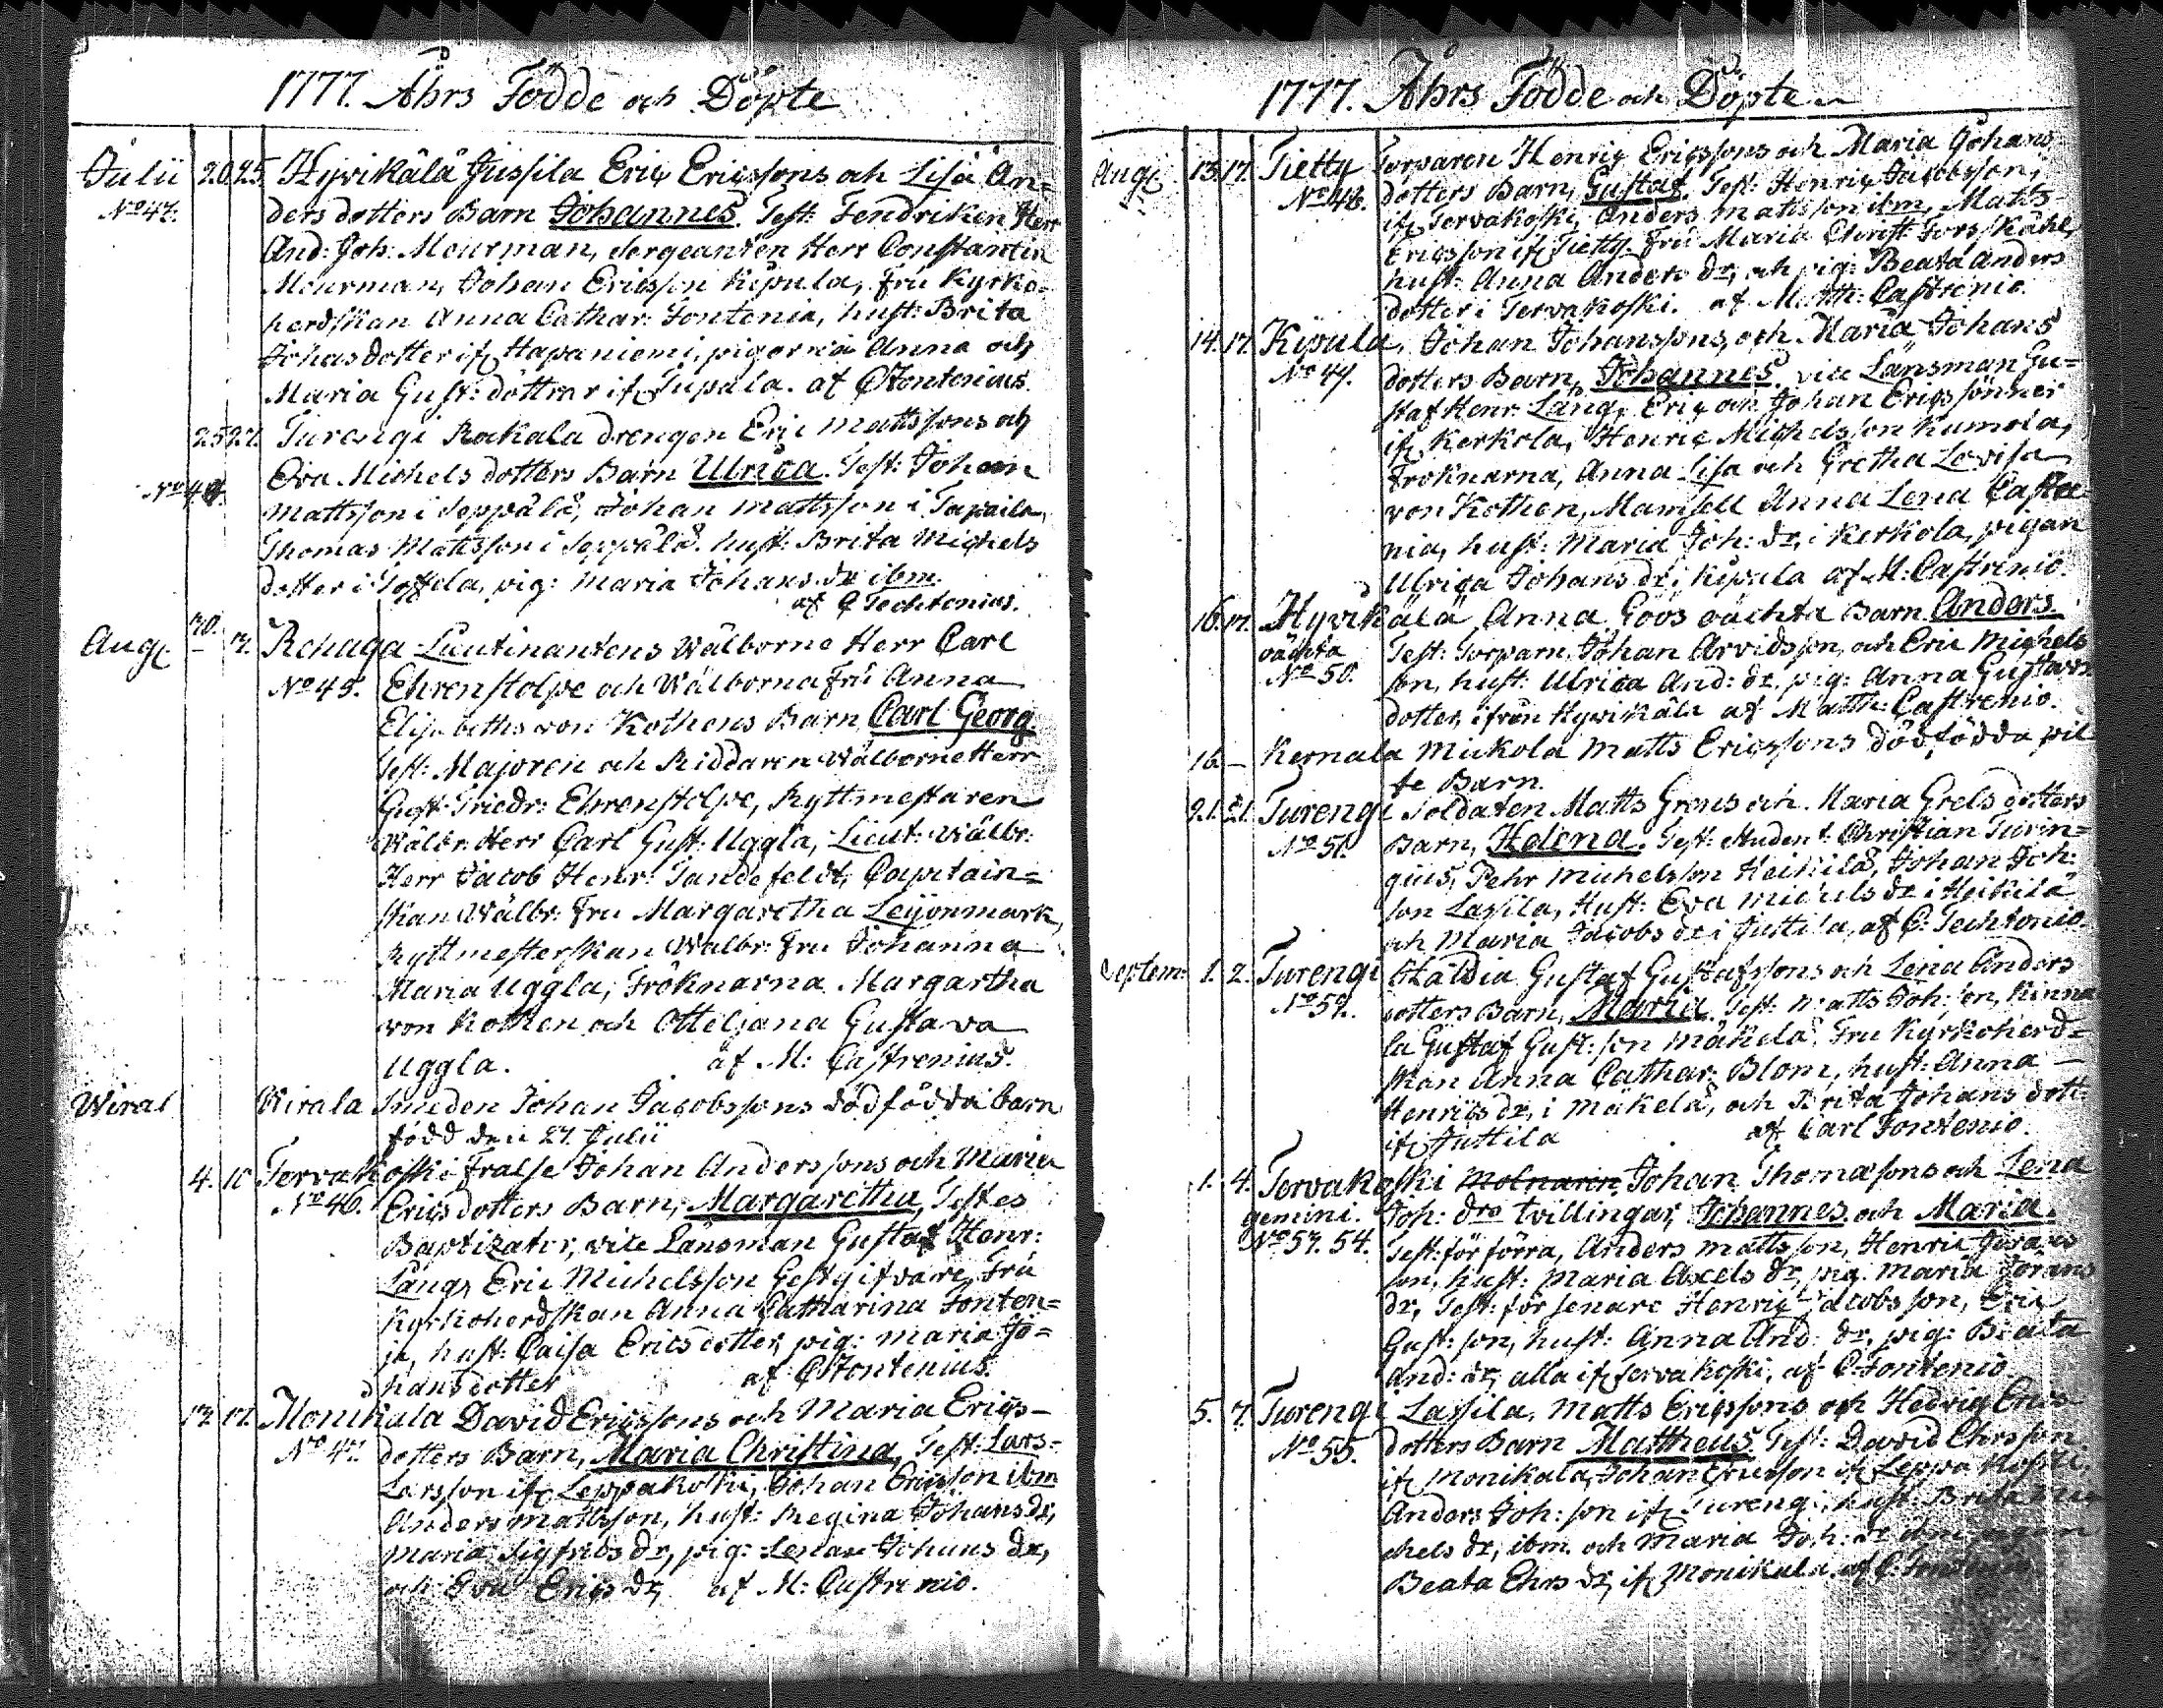 1777. Åhrs Födde och Döpte
Julii 20. 25. Hyvikälä Jussila Eric Ericssons och Lisa An=
No 43. ders dotters Barn Johannes. Test: Fendriken Herr
And: Joh: Meurman, Sergeanten Herr Constantin
Meurman, Johan Ericsson Kipula, Fru Kyrko=
herdskan Anna Cathar: Fontenia, hust: Brita
Johansdotter if. Hapaniemi, pigorna Anna och
Maria Gust: döttrar if. Supala. af C Fontenius.
25. 27. Turengi Rekala drengen Eric Mattssons och
Eva Michels dotters Barn Ulrica. Test: Johan
No 44. Mattsson i Seppälä, Johan Mattsson i
Thomas Mattsson i Seppälä. hust: Brita Michels
dotter i pig: Maria Johans dr ibm.
af C Techtonius.
Aug. 30. 3. Rehaga Lieutinantens Wälborne Herr Carl
No 45. Ehrenstolpe och Wälborna Fru Anna
Elisabeths von Kothens Barn Carl Georg.
Test: Majoren och Riddaren Wälborne Herr
Gust: Friedr: Ehrenstolpe, Ryttmestaren
Wälbr: Herr Carl Gust: Uggla, Lieut: Wälbr:
Herr Jacob Henr: Tandefeldt, Capitain=
skan Wälbr: Fru Margaretha Leijonmark,
Ryttmesterskan Wälbr: Fru Johanna
Maria Uggla, Fröknarna Margartha
von Kothen och Otteljana Gustava
Uggla. af M: Castrenius.
Wiral Wirala Smeden Johan Jacobssons dödfödda barn
född den 27. Julii
4. 10 Tervakoski Fralse Johan Anderssons och Maria
No 46. Ericsdotters Barn, Margaretha, Testes
Baptizator, vice Länsman Gustaf Henr:
Lång, Eric Michelsson Gestgifvare, Fru
Kyrkoherdskan Anna Catharina Fonten=
ja, hust: Caisa Ericsdotter, pig: Maria Jo=
hansdotter af C Fontenius.
13. 17. Monikala David Ericssons och Maria Erics-
No 47. dotters Barn, Maria Christina, Test: Lars
Larsson if. Leppakoski, Johan Ericsson ibm
Anders Mattsson, hust: Regina Johansdr,
Maria Sigfrids dr, pig: Lena Johans dr,
och Eva Erics dr, af M: Castrenio.
1777. Åhrs Födde och Döpte
Aug. 13. 17. Tietty Torparen Henric Ericssons och Maria Johans
No 48. dotters Barn, Gustaf. Test: Henric Jacobsson,
if. Tervakoski, Anders Mattsson ibm, Matts
Ericsson if. Tietty. Fru Maria Christ: Forsskåhl,
hust: Anna Anders dr, och pig: Beata Anders
dotter i Tervakoski. af Matth: Castrenio.
14. 17. Kipula, Johan Johanssons, och Maria Johans
No 49. dotters Barn, Johannes. vice Länsman Gu=
staf Henr: Lång, Eric och Johan Ericssönner
if. Kerkola, Henric Michelsson Kumola,
Fröknarna, Anna Lisa och Gretha Lovisa
von Kothen, Mamsell Anna Lena Castre
nia, hust: Maria Joh: dr, i Kerkola, pigan
Ulrica Johans dr i Kipula af M: Castrenio.
16. 17. Hyvikälä Anna Göös oächta Barn Anders
oächta Test: Torparn Johan Arvidsson, och Eric Michels
No 50. son, hust: Ulrica And: dr. pig: Anna Gustavs
dotter ifrån Hyvikälä af Matth: Castrenio.
16. - Kernala Mickola Matts Ericssons dödfödda pil
te Barn.
21. 21. Turengi Soldaten Matts Grens och Maria Grels dotters
No 51. Barn, Helena. Test: Student Christian Turin=
gius, Pehr Michelsson Heikilä, Johan Joh:
son Lassila, Hust: Eva Michels dr i Heikilä
och Maria Jacobs dr i Juttila, af C: Techtonio.
Septem: 1. 2. Turengi Ståldia Gustaf Gustafssons och Lena Anders
No 52. dotters Barn, Maria. Test: Matts Joh: son, Kinna
la Gustaf Gust: son Mäkelä. Fru Kyrkoherd=
skan Anna Cathar: Blom, hust: Anna
Henrics dr, i Mäkelä, och Brita Johans dott:
if. Juttila af Carl Fontenio.
1. 4. Tervakoski Molnaren Johan Thomæsons och Lena
gemini. Joh: drs tvillingar, Johannes och Maria.
No 53. 54. Test: för förra, Anders Mattsson, Henric Görans
son, hust: Maria Axels dr, pig. Maria Görans
dr, Test: för senare Henric Jacobsson, Eric
Gust: son, hust: Anna And: dr, pig: Beata
And: dr, alla if. Tervakoski, af C: Fontenio
5. 7. Turengi Lassila, Matts Ericssons och Hedvig Erics
No 55. dotters Barn Mattheus. Test: David Ehrsson.
if. Monikala, Johan Ericsson if. Leppakoski,
Anders Joh: son if. Turengi, hust: Brita Mi
chels dr, ibm. och Maria Joh: dr ibm pigan
Beata Ehrs dr, if. Monikala. af C: